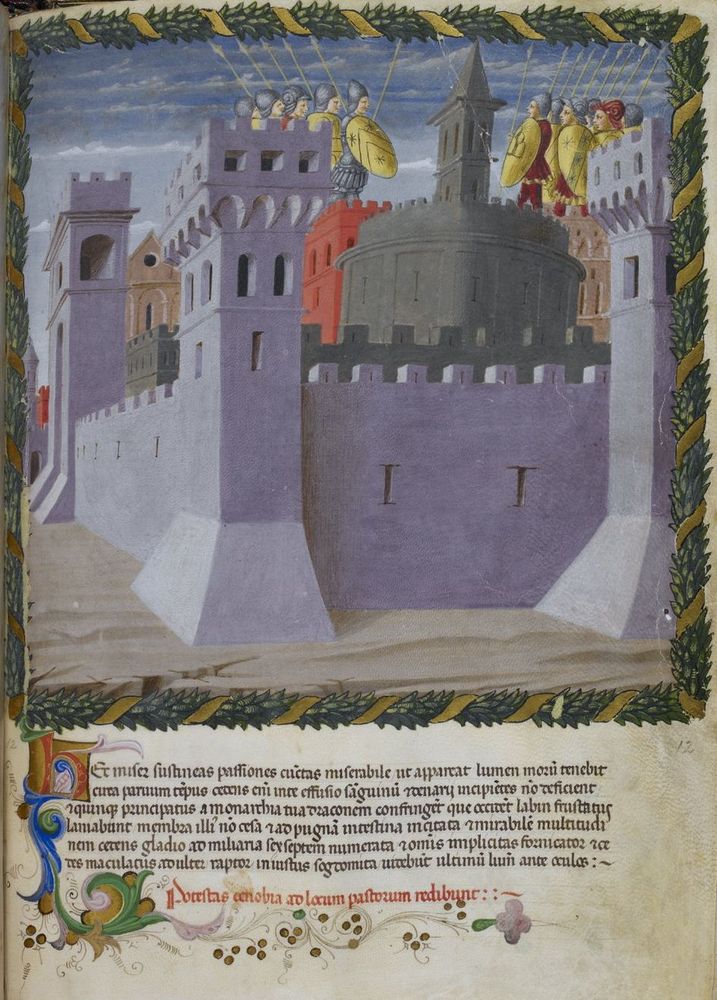 Et miser sustineas passiones cunctas miserabile ut appareat lumen morum tenebit
circa paruum tempus cecens enim inte effusio sanguinum denarij incipientes no deficient
quinque principatus a monarchia tua draconem confringet que occitet labin frustatis
laniabunt membra illi no cesa ad pugnam intestina incitata mirabile multitudi
nem cecens gladio ad miliaria sex septem numerata omnis implicitas fornicator ce
tes maculatus adulter raptor iniustus sogdomita uitebit ultimum ante oculos : ~
Potestas cenobia ad locum pastorum redibunt : : ~
12
12